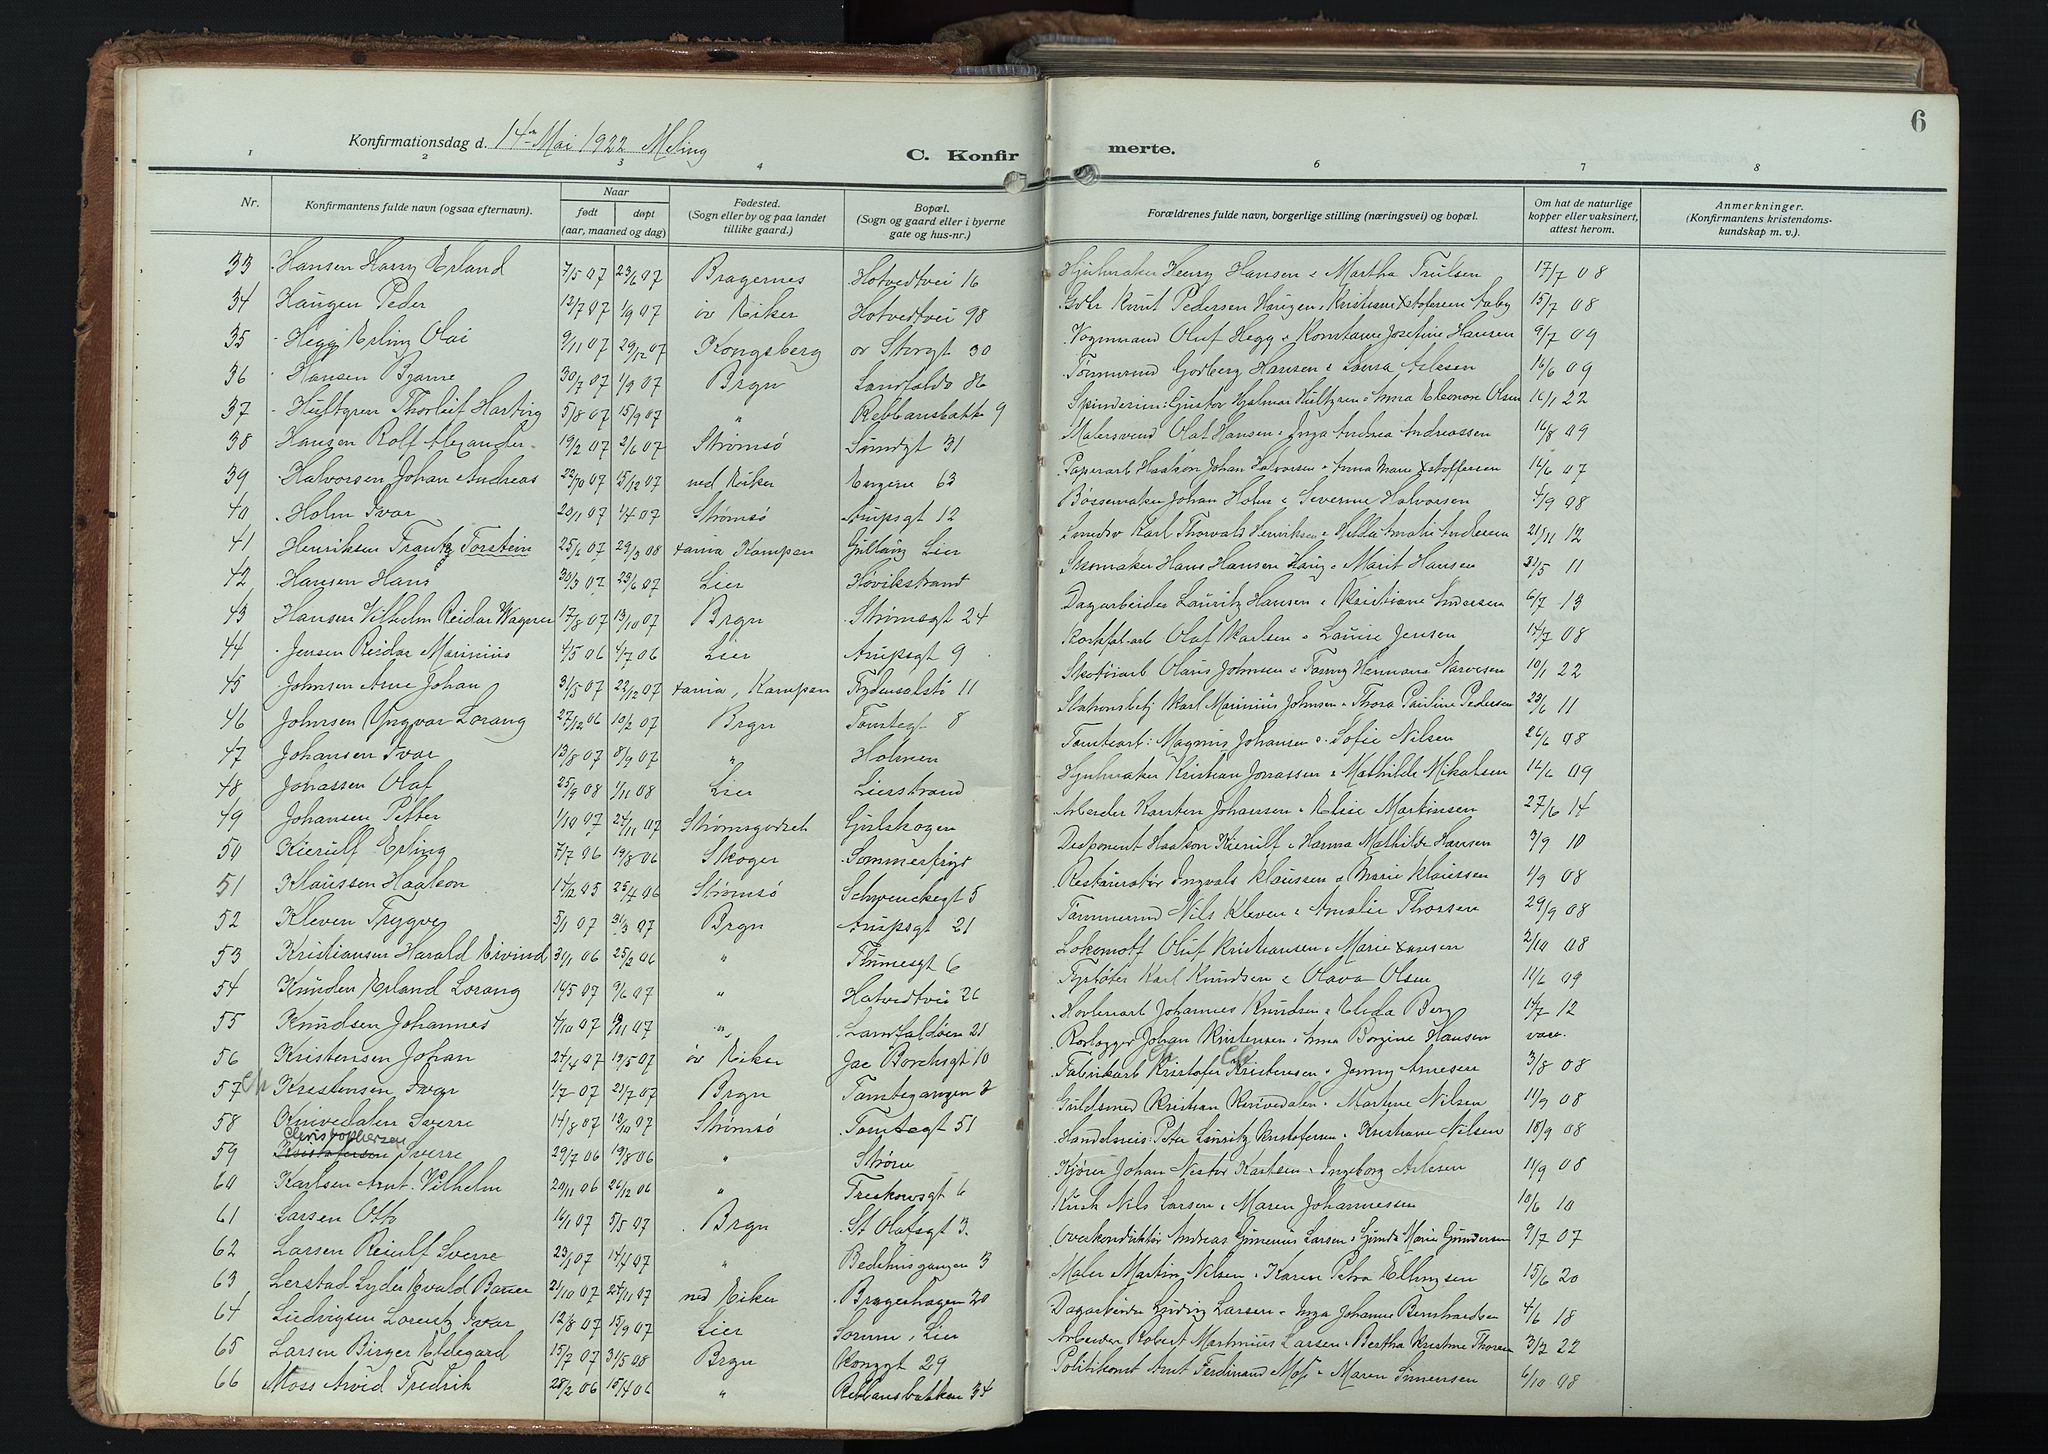 6
Konfirmationsdag d. 14de Mai 1922
C. Konfirmerte.
1 2 3 4 6 7 8
Nr.
Konfirmantens fulde navn (ogsaa efternavn).
Naar
født døpt
(aar, maaned og dag)
Fødested.
(Sogn eller by og paa landet
tillike gaard.)
Bopæl.
(Sogn og gaard eller i byerne
gate og hus-nr.)
Forældrenes fulde navn, borgerlige stilling (næringsvei) og bopæl.
Om hat de naturlige
kopper eller vaksinert,
attest herom.
Anmerkninger.
(Konfirmantens kristendoms-
kundskap m. v.).
33 Hansen Harry Erland 7/5 07 23/6 07 Bragernes Hotvedtvei 16 Hjulmaker Henry Hansen o Martha Trulsen 17/7 08
34 Haugen Peder 12/7 07 1/9 07 øv Eiker Hotvedtvei 98 Knut Pedersen Haugen o Kristiane Xstofersen Aaby 15/7 08
35 Hegg Erling Olai 9/11 07 29/12 07 Kongsberg øv Storgt 30 Vognmand Oluf Hegg o Konstanse Josefine Hansen 9/7 09
36 Hansen Bjarne 30/7 07 1/9 07 Brgn Landfaldø 86 Tømmermd Godberg Hansen o Laura Aslesen 16/6 09
37 Hultgren Thorleif Harting 5/8 07 15/9 07 " Rebbansbakk 9 Gustav Hjalmar Hultgren o Anna Eleonore Olsen 16/1 22
38 Hansen Rolf Alexander 19/2 07 2/6 07 Strømsø Sundgt 31 Malersvend Olaf Hansen o Inga Andrea Andreassen 16/8 09
39 Halvorsen Johan Andreas 22/10 07 15/12 07 ned Eiker Engene 63 Papirarb Haakon Johan Halvorsen o Anna Marie Xstoffersen 16/6 07
40 Holm Ivar 20/1 07 1/4 07 Strømsø Arupsgt 12 Bøssemaker Johan Holm o Severine Halvorsen 4/9 08
41 Henriksen Frantz Torstein 25/6 07 29/3 08 Xania Kampen Gullaug Lier Karl Thorvald Henriksen o Hilda Amalie Andersen 21/11 12
42 Hansen Hans 30/3 07 23/6 07 Lier Høvikstrand Skomaker Hans Hansen Haug o Marit Hansen 31/5 11
43 Hansen Vilhelm Reidar Wagner 17/8 07 13/10 07 Brgn Strømsgt 24 Dagarbeider Lauritz Hansen o Kristiane Andersen 6/7 13
44 Jensen Reidar Marinius 4/5 06 4/7 06 Lier Arupsgt 9 Olaf Karlsen o Louise Jensen 14/7 08
45 Johnsen Arne Johan 31/5 07 22/12 07 Xania, Kampen 11 Skotøiarb Olaus Johnsen o Fanny Hermana Narvesen 10/1 22
46 Johnsen Yngvar Lorang 27/12 06 10/2 07 Brgn Tomtegt 8 Stationsbetj Karl Marinius Johnsen o Thora Pauline Pedersen 23/6 11
47 Johansen Ivar 13/8 07 8/9 07 " Holmen Tomtearb: Magnus Johansen o Sofie Nilsen 26/6 08
48 Johassen Olaf 25/9 08 1/11 08 Lier Lierstrand Hjulmaker Kristian Jonassen o Mathilde Mikalsen 16/6 09
49 Johansen Petter 1/10 07 24/11 07 Strømsgodset Gulskogen Arbeider Karsten Johansen o Elise Martinsen 27/6 14
50 Kierulf Erling 7/7 06 19/8 06 Skoger Sommerfryd Disponent Haakon Kierulf o Hanna Mathilde Hansen 3/9 10
51 Klaussen Haakon 14/12 05 25/4 06 Strømsø Schwenckegt 5 Restauratør Ingvald Klaussen o Marie Klaussen 1/9 08
52 Kleven Trygve 5/1 07 31/3 07 Brgn Arupsgt 21 Tømmermd Nils Kleven o Amalie Thorsen 29/9 08
53 Kristiansen Harald Eivind 31/1 06 25/2 06 " Thunesgt 6 Lokomotf Oluf Kristiansen o Marie Xansen 2/10 08
54 Knuden Erland Lorang 14/5 07 9/6 07 " Hotvedtvei 26 Fyrbøter Karl Knudsen o Olava Olsen 11/6 09
55 Knudsen Johannes 4/10 07 19/11 07 " Landfaldøen 21 Høvleriarb Johannes Knudsen o Elida Berg 14/7 12
56 Kristensen Johan 24/4 07 19/5 07 øv Eiker Jac Borchsgt 10 Rørlægger Johan Kristensen o Anna Borgine Hansen vacc.
57 Ch Kristensen Ivar 1/7 07 21/7 07 Brgn Tomtegangen 2 Fabrikarb Kristofer Kristensen o Jenny Arnesen 3/8 08
58 Knivedalen Sverre 14/8 07 13/10 07 Strømsø Tomtegt 51 Guldsmed Kristian Knivedalen o Martine Nilsen 11/9 08
Christophersen
59 Kristofersen Sverre 29/7 06 19/8 06 " Strøm Handelsreis. Peter Lauritz Kristofersen o Kristiane Nilsen 18/9 08
60 Karlsen Arnt Vilhelm 20/11 06 26/12 06 " Treskowsgt 6 Kjører Johan Nestor Karlsen o Ingeborg Aslesen 11/9 08
61 Larsen Otto 16/1 07 5/5 07 Brgn St Olafsgt 3 Kusk Nils Larsen o Maren Johannessen 10/6 10
62 Larsen Reiulf Sverre 23/1 07 14/4 07 " Bedehusgangen 3 Overkonduktør Andreas Gunerius Larsen o Gunda Marie Gundersen 9/7 07
63 Lerstad Lyder Evald Bauer 21/10 07 24/11 07 ned Eiker Bragerhagen 20 Maler Martin Nilsen o Karen Petra Ellingsen 15/6 20
64 Ludvigsen Lorentz Ivar 12/8 07 15/9 07 Lier Sørum, Lier Dagarbeider Ludvig Larsen o Inga Johanne Bernhardsen 4/6 18
65 Larsen Birger Eldegard 15/7 07 31/5 08 Brgn Konggt 29 Arbeider Robert Martinius Larsen o Bertha Kristine Thorsen 3/2 22
66 Moss Arvid Fredrik 28/2 06 15/4 06 " Rebbansbakken 34 Politikonst Arnt Ferdinand Moss o Maren Simensen 6/10 98